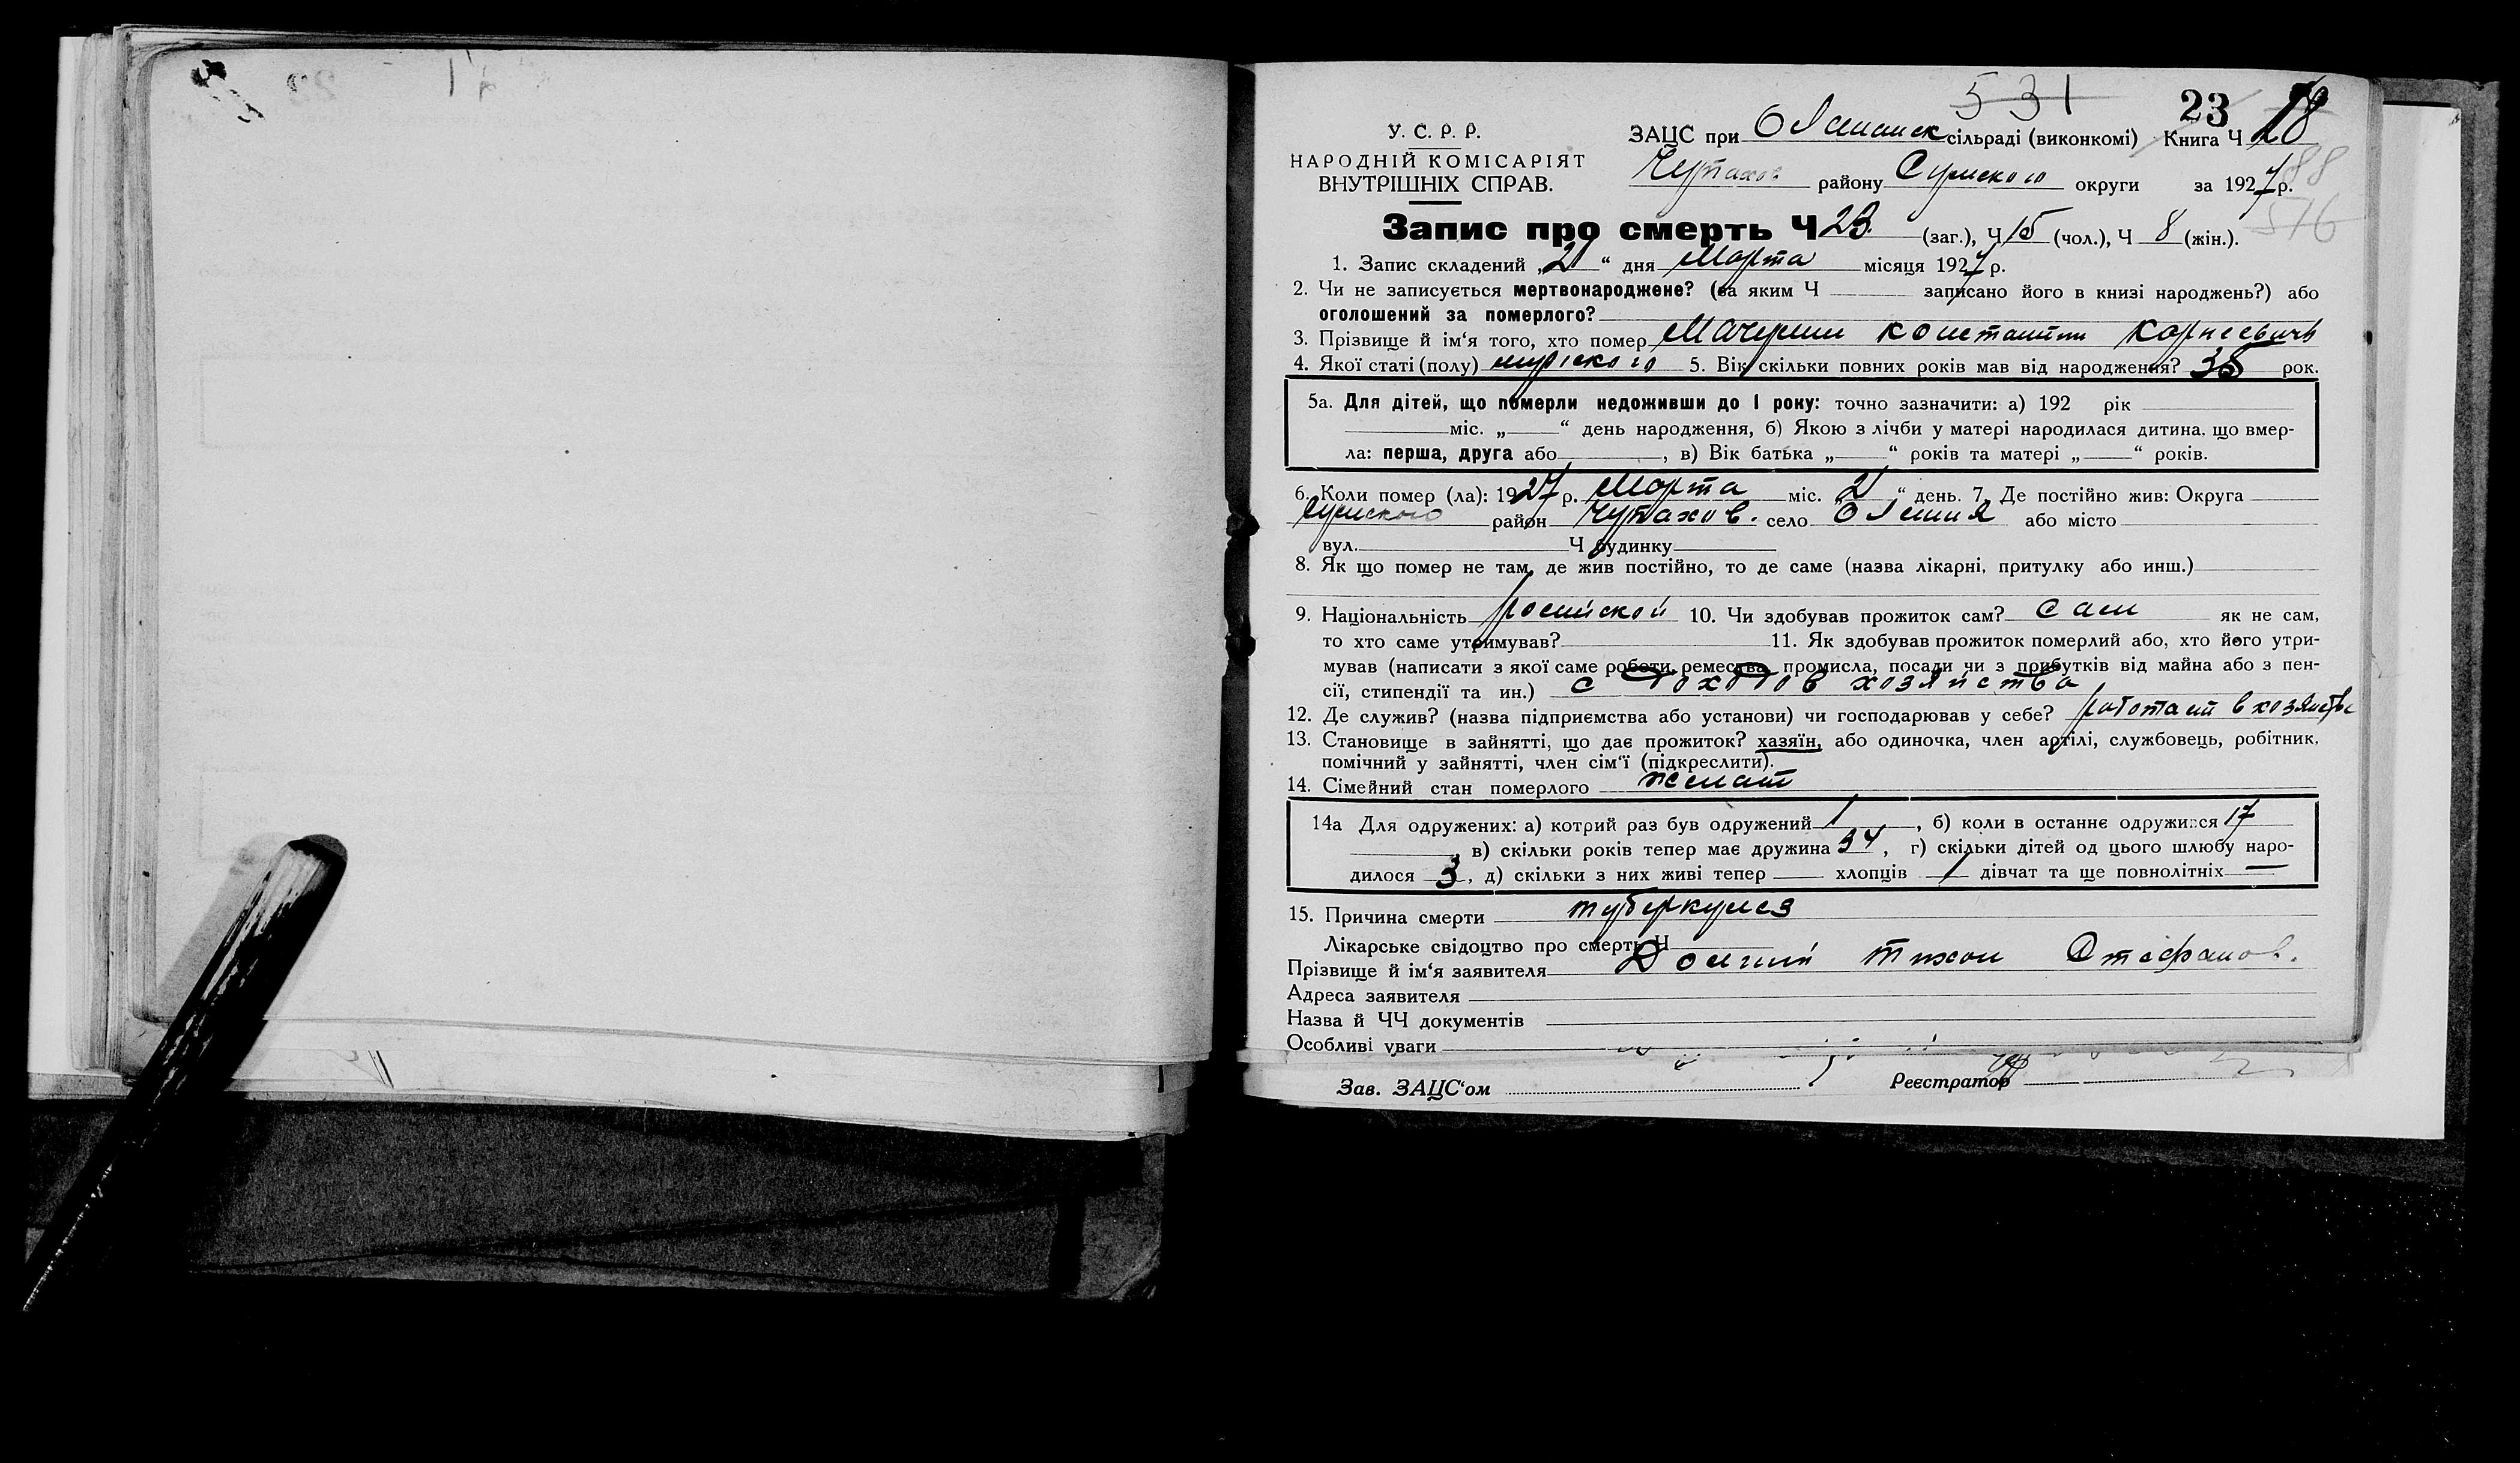 531 23 18
У. С. Р. Р.
НАРОДНІЙ КОМІСАРІЯТ
ВНУТРІШНІХ СПРАВ.
ЗАЦС при сільраді (виконкомі) Книга Ч 18
Чупахов району Сумского округи за 1927 р.
88
576
Запис про смерть Ч 23. (заг.), Ч 15 (чол.), Ч 8 (жін.).
1. Запис складений „21“ дня Марта місяця 1927 р.
2. Чи не записується мертвонароджене? (за яким Ч записано його в книзі народжень?) або
оголошений за померлого?
3. Прізвище й ім‘я того, хто помер Константин Корнеевичъ
4. Якої статі (полу) мужского 5. Вік скільки повних років мав від народження? 38 рок.
5а. Для дітей, що померли недоживши до 1 року: точно зазначити: а) 192 рік
міс. „ “ день народження, б) Якою з лічби у матері народилася дитина, що вмер-
ла: перша, друга або , в) Вік батька „ “ років та матері „ “ років.
6. Коли помер (ла): 1927 р. Марта міс. „21“ день. 7. Де постійно жив: Округа
Сумского район Чупахов. село Олешня або місто
вул. Ч будинку
8. Як що помер не там, де жив постійно, то де саме (назва лікарні, притулку або инш.)
9. Національність російской 10. Чи здобував прожиток сам? Сам як не сам,
то хто саме утримував? 11. Як здобував прожиток померлий або, хто його утри-
мував (написати з якої саме роботи, ремества, промисла, посади чи з прибутків від майна або з пен-
сії, стипендії та ин.) с доходов хозяйства
12. Де служив? (назва підприємства або установи) чи господарював у себе? работает в хозяйстве
13. Становище в зайнятті, що дає прожиток? хазяїн, або одиночка, член артілі, службовець, робітник,
помічний у зайнятті, член сім‘ї (підкреслити).
14. Сімейний стан померлого женат
14а Для одружених: а) котрий раз був одружений 1 , б) коли в останнє одружився 17
, в) скільки років тепер має дружина 34 , г) скільки дітей од цього шлюбу наро-
дилося 3 , д) скільки з них живі тепер — хлопців 1 дівчат та ще повнолітніх —
15. Причина смерти туберкулез
Лікарське свідоцтво про смерть Ч
Прізвище й ім‘я заявителя Долгий Тихон Стефанов.
Адреса заявителя
Назва й ЧЧ документів
Особливі уваги
Зав. ЗАЦС‘ом Реєстратор